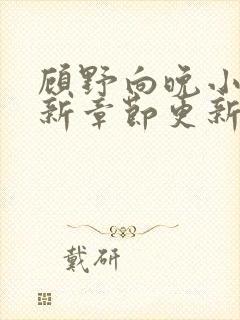 顾野向晚小
新章节更新
戴研